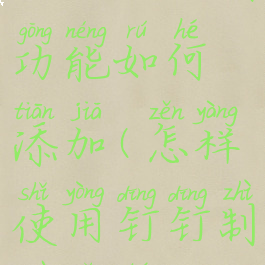 gōng néng rú hé
功能如何
tiān jiā zěn yàng
添加（怎样
shǐ yòng dīng dīng zhì
使用钉钉制